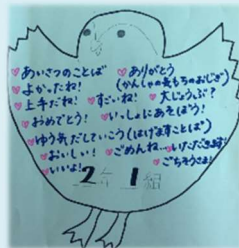 ♡あいさつのことば ♡ありがとう
(かんしゃの気もちのおじぎ)
♡よかったね!
♡上手だね! ♡すごいね! ♡大じょうぶ?
♡おめでとう! ♡いっしょにあそぼう!
♡ゆう気だしていこう(はげますことば)
♡おいしい! ♡ごめんね… ♡いただきます!
♡いいよ! ♡ごちそうさま!
2年 1組